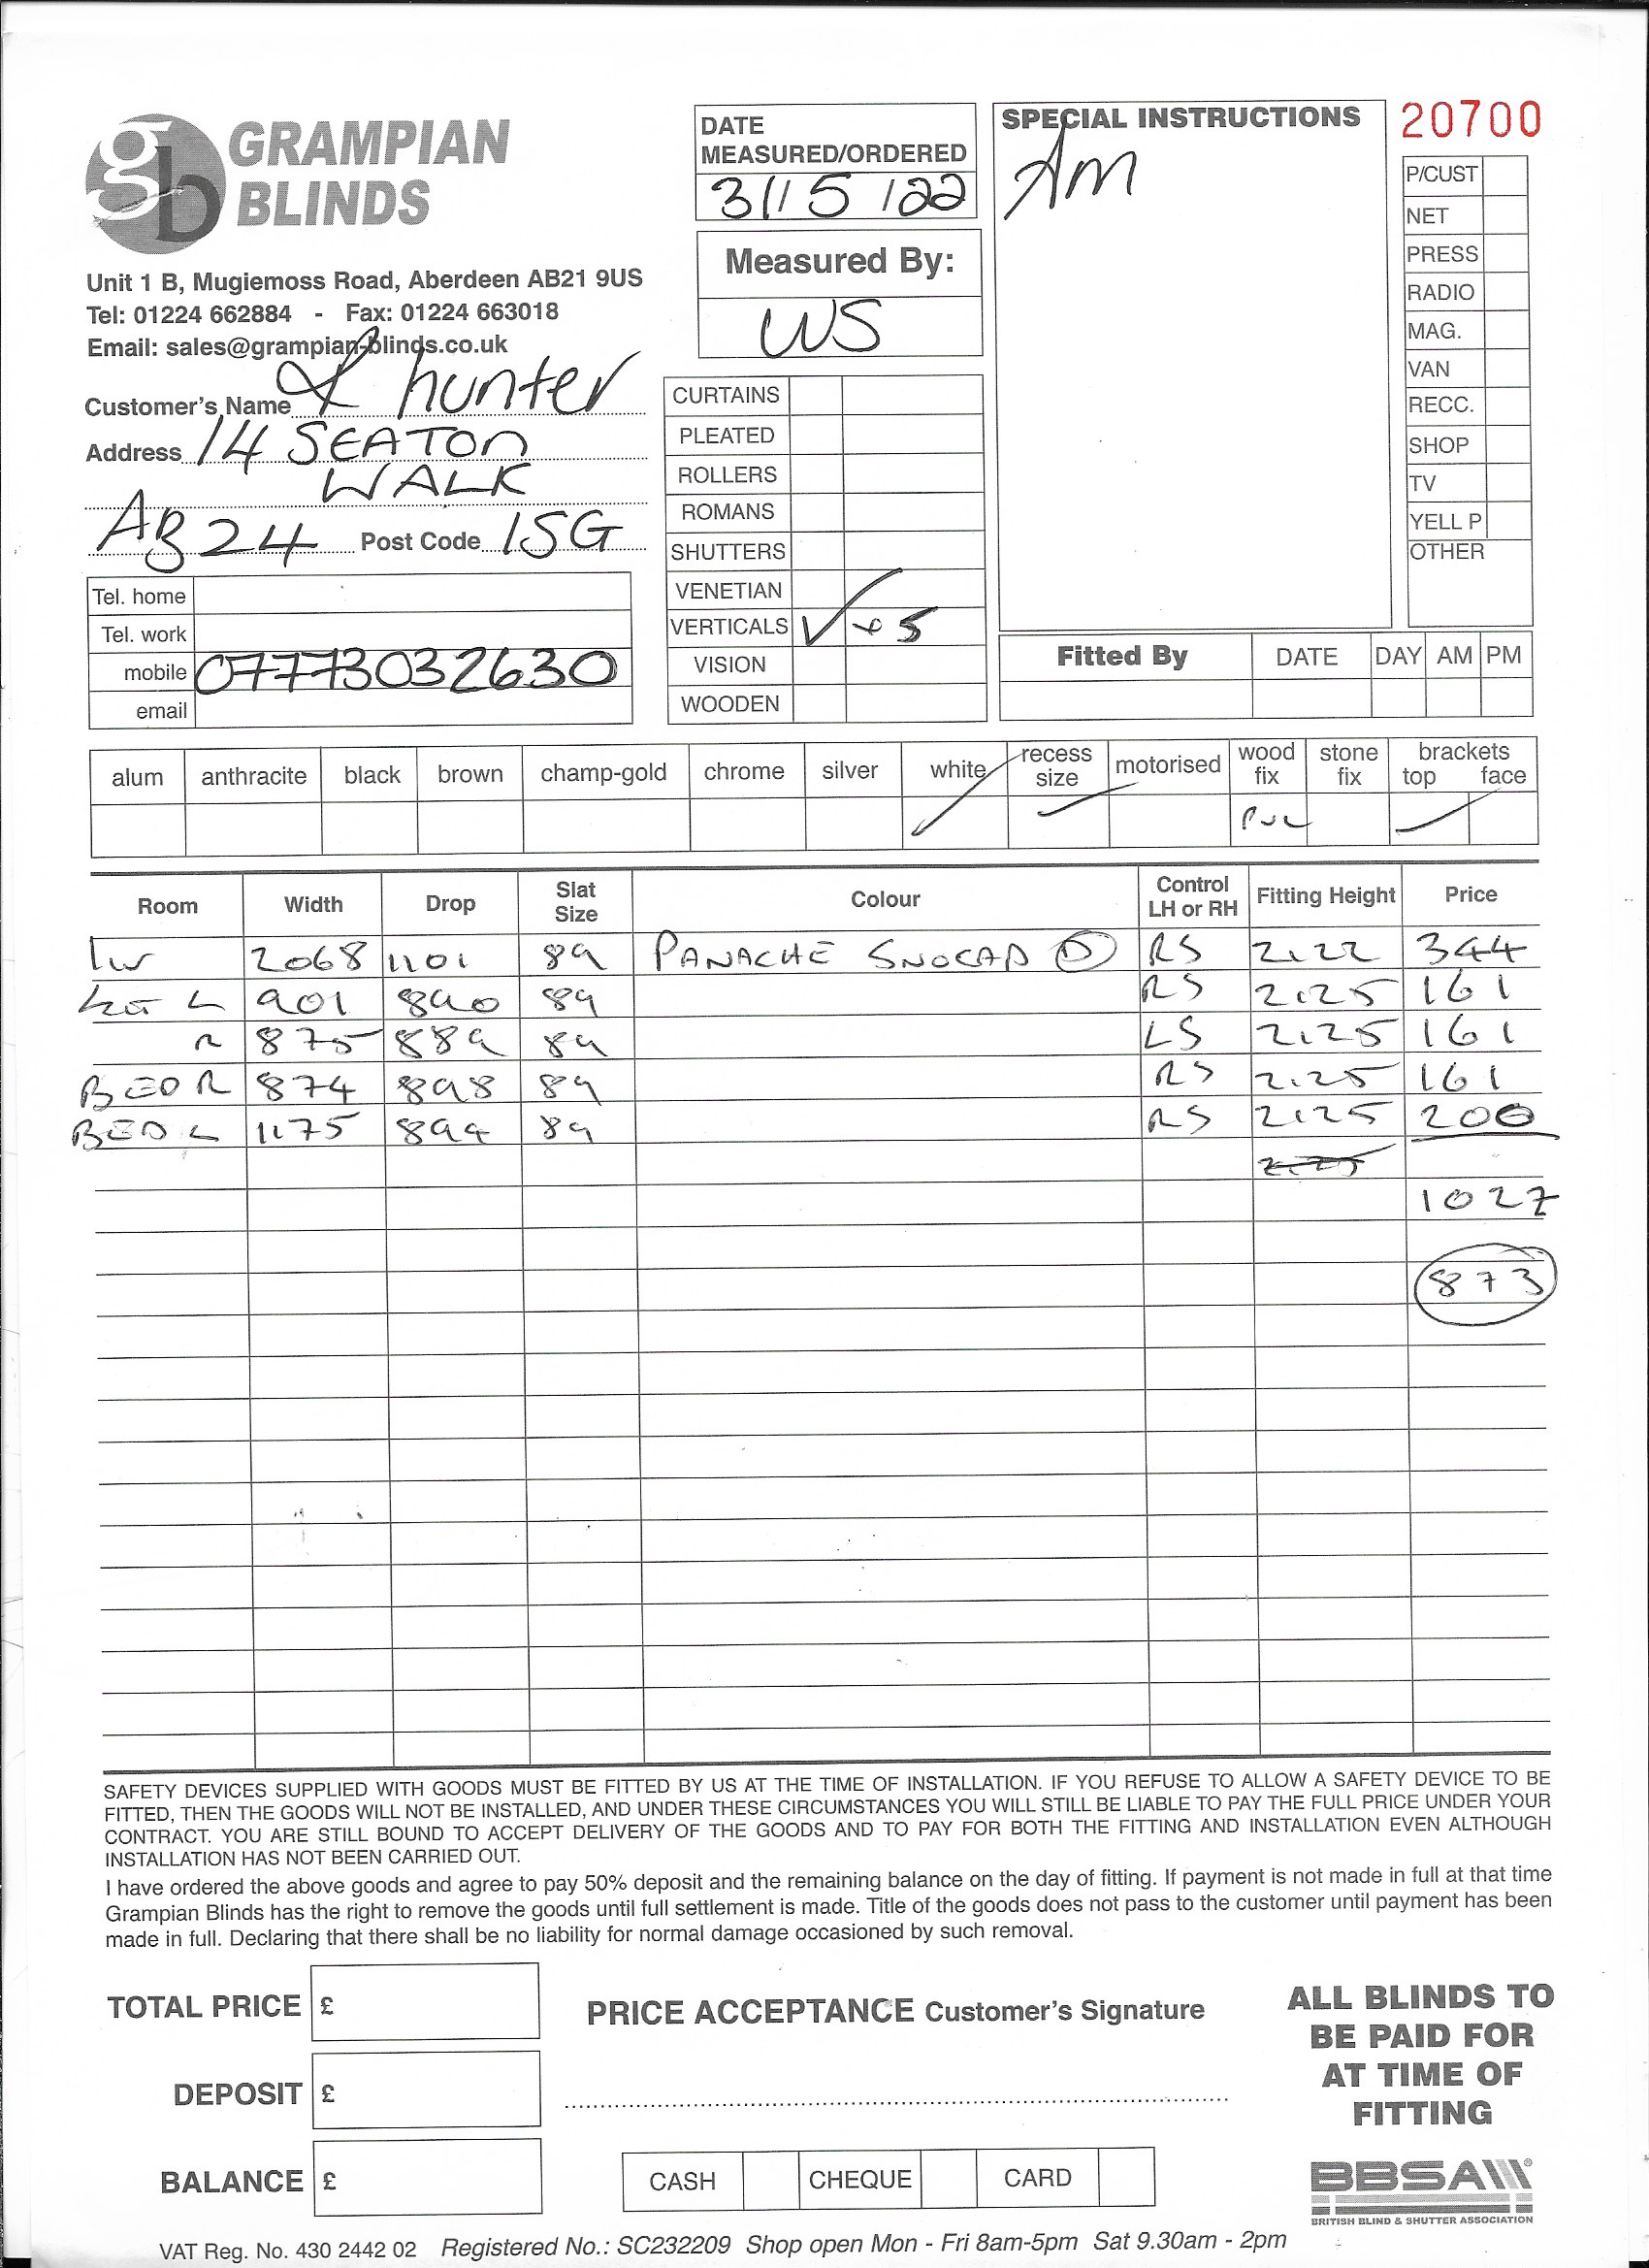 gb GRAMPIAN
BLINDS
Unit 1 B, Mugiemoss Road, Aberdeen AB21 9US
Tel: 01224 662884 - Fax: 01224 663018
Email: sales@grampian-blinds.co.uk
Customer's Name hunter
Address 14 SEATON
WALK
AB24 Post Code 1SG
Tel. home
Tel. work
mobile 07773032630
email
DATE
MEASURED/ORDERED
31/5/22
Measured By:
WS
CURTAINS
PLEATED
ROLLERS
ROMANS
SHUTTERS
VENETIAN
VERTICALS ✓ x 5
VISION
WOODEN
SPECIAL INSTRUCTIONS
AM
20700
P/CUST
NET
PRESS
RADIO
MAG.
VAN
RECC.
SHOP
TV
YELL P
OTHER
Fitted By DATE DAY AM PM
alum anthracite black brown champ-gold chrome silver white recess size motorised wood fix stone fix brackets top face
✓ ✓ PVC ✓
Room Width Drop Slat Size Colour Control LH or RH Fitting Height Price
2068 1101 89 PANACHE SNOCAP D RS 2.22 344
L 901 890 89 RS 2.25 161
R 875 889 89 LS 2.25 161
BED R 874 898 89 RS 2.25 161
BED L 1175 894 89 RS 2.25 200
2.25
1027
873
SAFETY DEVICES SUPPLIED WITH GOODS MUST BE FITTED BY US AT THE TIME OF INSTALLATION. IF YOU REFUSE TO ALLOW A SAFETY DEVICE TO BE
FITTED, THEN THE GOODS WILL NOT BE INSTALLED, AND UNDER THESE CIRCUMSTANCES YOU WILL STILL BE LIABLE TO PAY THE FULL PRICE UNDER YOUR
CONTRACT. YOU ARE STILL BOUND TO ACCEPT DELIVERY OF THE GOODS AND TO PAY FOR BOTH THE FITTING AND INSTALLATION EVEN ALTHOUGH
INSTALLATION HAS NOT BEEN CARRIED OUT.
I have ordered the above goods and agree to pay 50% deposit and the remaining balance on the day of fitting. If payment is not made in full at that time
Grampian Blinds has the right to remove the goods until full settlement is made. Title of the goods does not pass to the customer until payment has been
made in full. Declaring that there shall be no liability for normal damage occasioned by such removal.
TOTAL PRICE £
DEPOSIT £
BALANCE £
PRICE ACCEPTANCE Customer's Signature
CASH CHEQUE CARD
ALL BLINDS TO
BE PAID FOR
AT TIME OF
FITTING
BBSA
BRITISH BLIND & SHUTTER ASSOCIATION
VAT Reg. No. 430 2442 02 Registered No.: SC232209 Shop open Mon - Fri 8am-5pm Sat 9.30am - 2pm